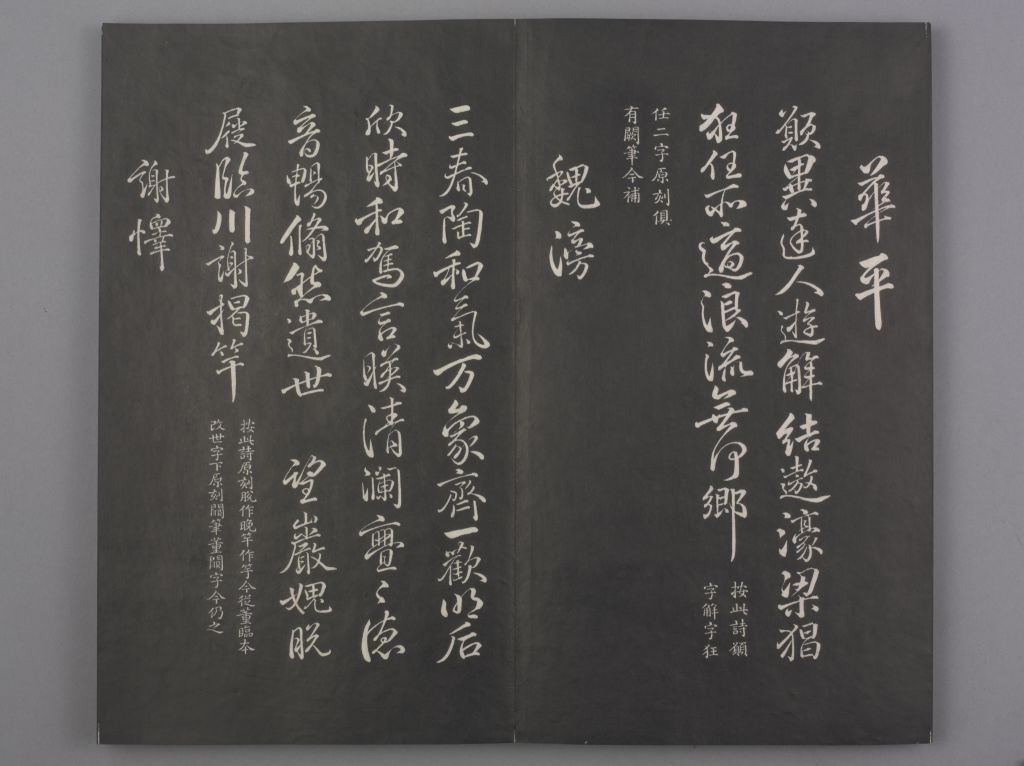 華平
願異達人遊解結遨濠梁猖
狂任所適浪流無何鄉
按此詩願
字解字狂
任二字原刻俱
有闕筆今補
魏滂
三春陶和氣万象齊一歡明后
欣時和駕言暎清瀾亹〻德
音暢翛然遺世 望巖媿脫
屣臨川謝揭竿
按此詩原刻脫作晚竿作竽今從董臨本
改世字下原刻闕筆董闕字今仍之
謝懌